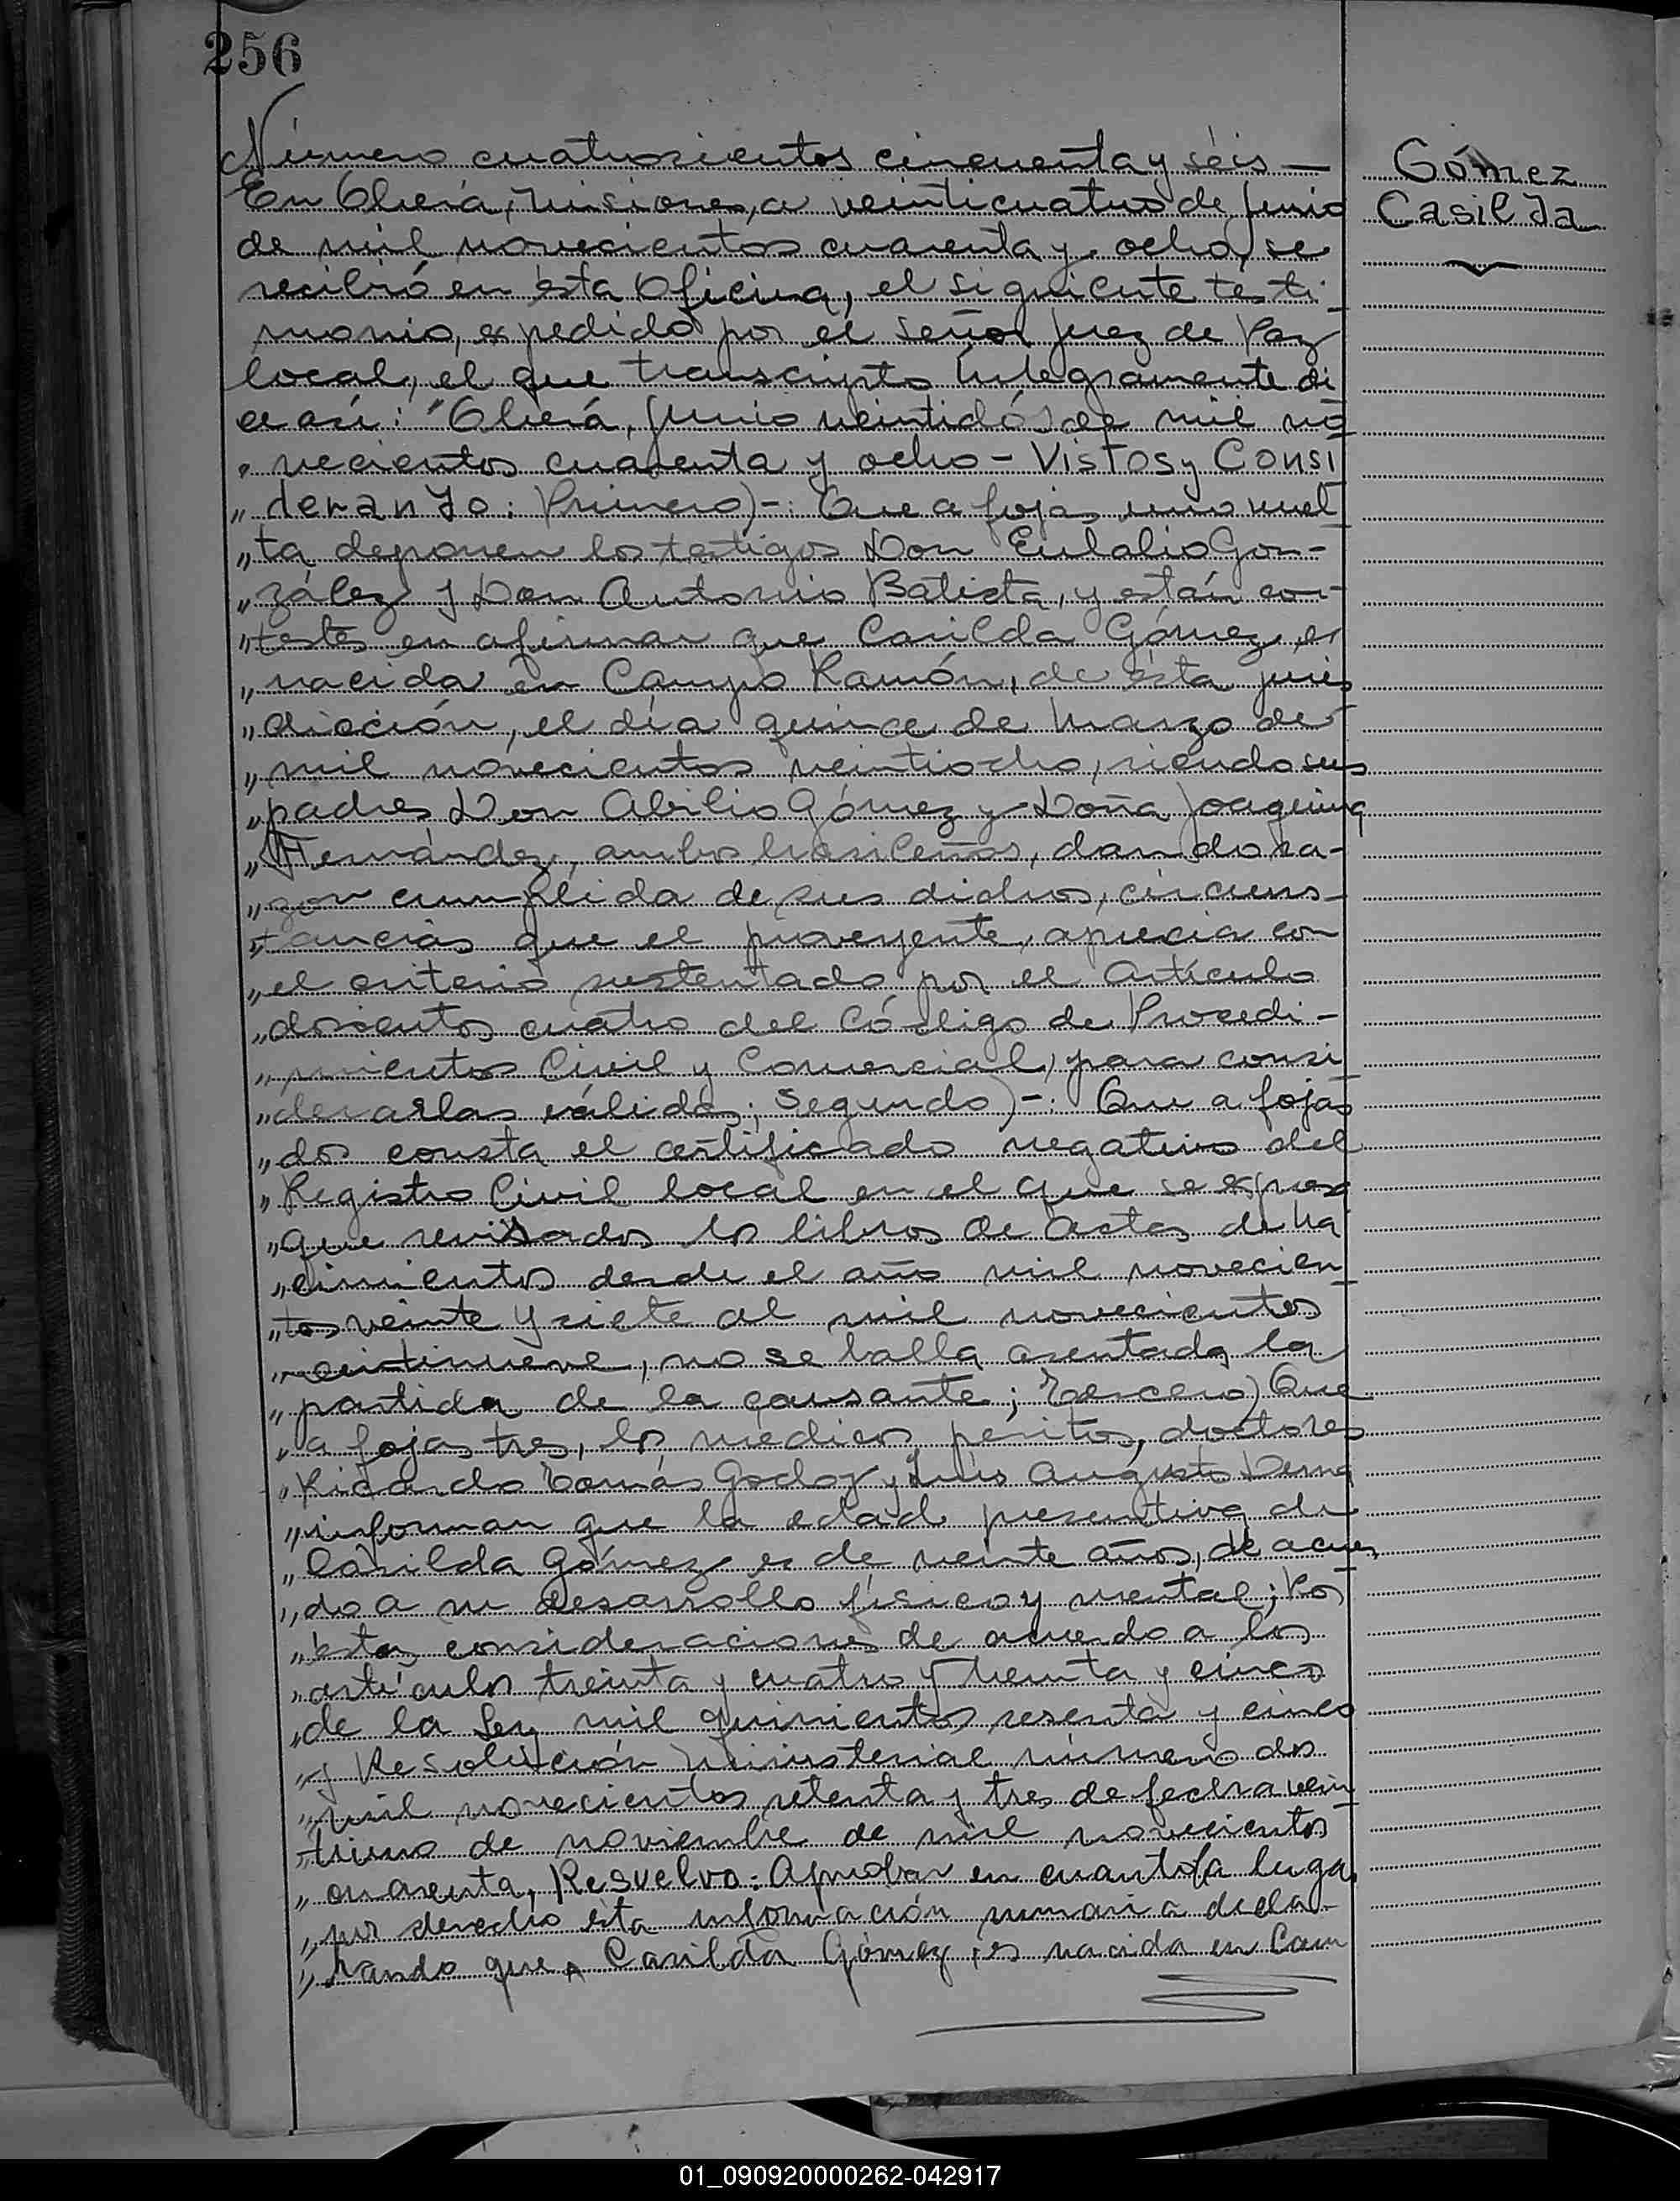 256
Número cuatrocientos cincuenta y séis —
En Oberá, Misiones, a veinticuatro de Junio
de mil novecientos cuarenta y ocho, se
recibió en ésta Oficina, el siguiente testi-
monio, expedido por el señor Juez de Paz
local, el que transcripto íntegramente di
ce así: "Oberá, Junio veintidós de mil no
" vecientos cuarenta y ocho - Vistos y Consi
" deranJo: Primero)-: Que a fojas uno vuel
" ta deponen los testigos Don Eulalio Gon-
" zález y Don Antonio Batista, y están con-
" testes en afirmar que Casilda Gómez, es
" nacida en Campo Ramón, de ésta juris
" dicción, el día quince de Marzo de
" mil novecientos veintiocho, siendo sus
" padres Don Abilio Gómez y Doña Joaquina
" Hernández, ambos brasileños, dando ra-
" zón cumplida de sus dichos, circuns-
" tancias que el proveyente, aprecia con
" el criterio sustentado por el Artículo
" doscientos cuatro del Código de Procedi-
" mientos Civil y Comercial, para consi
" derarlas válidas; Segundo)-: Que a fojas
" dos consta el certificado negativo del
" Registro Civil local en el que se expresa
" que revisados los libros de Actas de Na
" cimientos desde el año mil novecien
" tos veinte y siete al mil novecientos
" veintinueve, no se halla asentada la
" partida de la causante; Tercero) Que
" a fojas tres, los médicos peritos, doctores
" Ricardo Tomás Godoy y Luis Augusto Derna
" informan que la edad presuntiva de
" Casilda Gómez es de veinte años, de acuer
" do a su desarrollo físico y mental; Por
" éstas consideraciones de acuerdo a los
" artículos treinta y cuatro y treinta y cinco
" de la Ley mil quinientos sesenta y cinco
" y Resolución Ministerial número dos
" mil novecientos setenta y tres de fecha vein
" tiuno de noviembre de mil novecientos
" cuarenta, Resuelvo: Aprobar en cuanto ha lugar
" por derecho ésta información sumaria decla-
" rando que Casilda Gómez, es nacida en Cam
Gómez
CasilJa
01_090920000262-042917